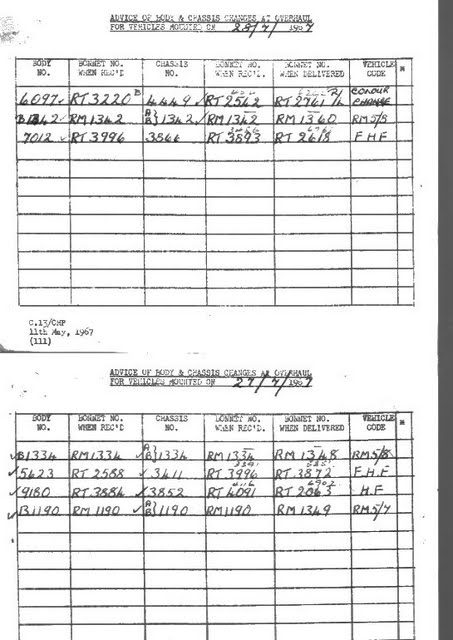 ADVICE OF BODY & CHASSIS CHANGES AT OVERHAUL
FOR VEHICLES MOUNTED ON 28/7/1967
BODY NO. BONNET NO. WHEN REC'D CHASSIS NO. BONNET NO. WHEN REC'D. BONNET NO. WHEN DELIVERED VEHICLE CODE *
6097 RT 3220 B 4449 RT 2542 RT 2761 COLOUR CHANGE
B1342 RM 1342 A B } 1342 RM 1342 RM 1360 RM5/8
7012 RT 3996 3866 RT 3893 RT 2618 F.H.F
C.13/CHF
11th May, 1967
(111)
ADVICE OF BODY & CHASSIS CHANGES AT OVERHAUL
FOR VEHICLES MOUNTED ON 27/7/1967
BODY NO. BONNET NO. WHEN REC'D CHASSIS NO. BONNET NO. WHEN REC'D. BONNET NO. WHEN DELIVERED VEHICLE CODE *
B1334 RM 1334 A B } 1334 RM 1334 RM 1348 RM5/8
5423 RT 2588 3411 RT 3996 RT 3872 F.H.F
9180 RT 3884 3852 RT 4091 RT 2063 H.F
B1190 RM 1190 A B } 1190 RM 1190 RM 1349 RM5/7